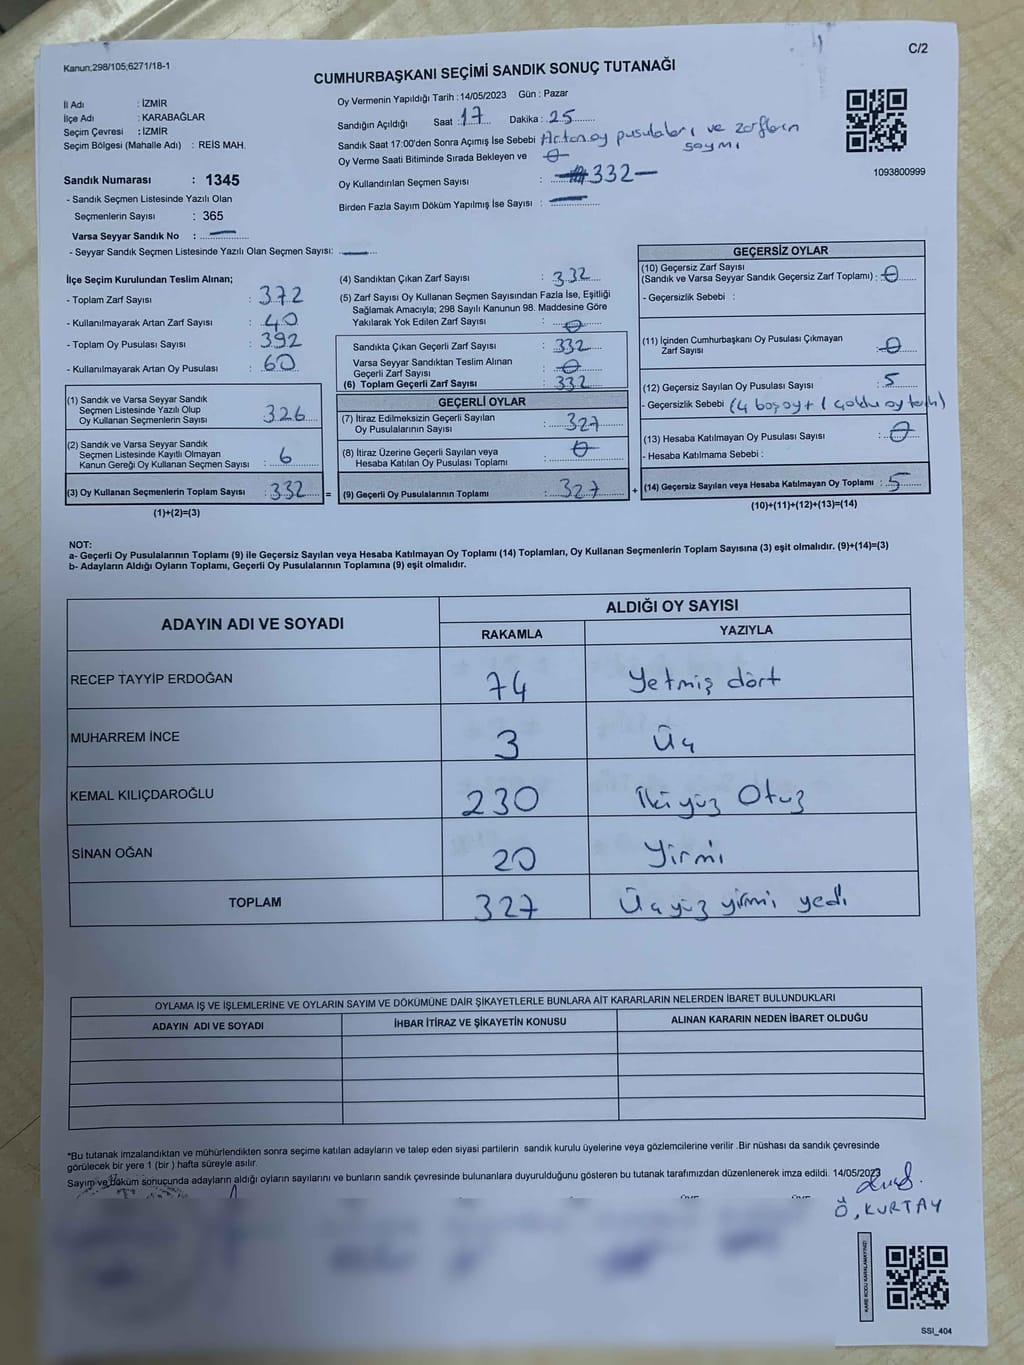 Kanun;298/105;6271/18-1
C/2
CUMHURBAŞKANI SEÇİMİ SANDIK SONUÇ TUTANAĞI
İl Adı : İZMİR
İlçe Adı : KARABAĞLAR
Seçim Çevresi : İZMİR
Seçim Bölgesi (Mahalle Adı) : REİS MAH.
Sandık Numarası : 1345
- Sandık Seçmen Listesinde Yazılı Olan
Seçmenlerin Sayısı : 365
Varsa Seyyar Sandık No : —
- Seyyar Sandık Seçmen Listesinde Yazılı Olan Seçmen Sayısı: —
Oy Vermenin Yapıldığı Tarih : 14/05/2023 Gün : Pazar
Sandığın Açıldığı Saat : 17 Dakika : 25
Sandık Saat 17:00'den Sonra Açımış İse Sebebi Artan oy pusulaları ve zarfların
sayımı
Oy Verme Saati Bitiminde Sırada Bekleyen ve 0
Oy Kullandırılan Seçmen Sayısı : 332—
Birden Fazla Sayım Döküm Yapılmış İse Sayısı : —
1093800999
İlçe Seçim Kurulundan Teslim Alınan;
- Toplam Zarf Sayısı : 372
- Kullanılmayarak Artan Zarf Sayısı : 40
- Toplam Oy Pusulası Sayısı : 392
- Kullanılmayarak Artan Oy Pusulası : 60
(1) Sandık ve Varsa Seyyar Sandık
Seçmen Listesinde Yazılı Olup
Oy Kullanan Seçmenlerin Sayısı : 326
(2) Sandık ve Varsa Seyyar Sandık
Seçmen Listesinde Kayıtlı Olmayan
Kanun Gereği Oy Kullanan Seçmen Sayısı : 6
(3) Oy Kullanan Seçmenlerin Toplam Sayısı : 332
(1)+(2)=(3)
=
(4) Sandıktan Çıkan Zarf Sayısı : 332
(5) Zarf Sayısı Oy Kullanan Seçmen Sayısından Fazla İse, Eşitliği
Sağlamak Amacıyla; 298 Sayılı Kanunun 98. Maddesine Göre
Yakılarak Yok Edilen Zarf Sayısı : 0
Sandıkta Çıkan Geçerli Zarf Sayısı : 332
Varsa Seyyar Sandıktan Teslim Alınan
Geçerli Zarf Sayısı : 0
(6) Toplam Geçerli Zarf Sayısı : 332
GEÇERLİ OYLAR
(7) İtiraz Edilmeksizin Geçerli Sayılan
Oy Pusulalarının Sayısı : 327
(8) İtiraz Üzerine Geçerli Sayılan veya
Hesaba Katılan Oy Pusulası Toplamı : 0
(9) Geçerli Oy Pusulalarının Toplamı : 327
+
GEÇERSİZ OYLAR
(10) Geçersiz Zarf Sayısı
(Sandık ve Varsa Seyyar Sandık Geçersiz Zarf Toplamı) : 0
- Geçersizlik Sebebi :
(11) İçinden Cumhurbaşkanı Oy Pusulası Çıkmayan
Zarf Sayısı : 0
(12) Geçersiz Sayılan Oy Pusulası Sayısı : 5
- Geçersizlik Sebebi (4 boş oy + 1
(13) Hesaba Katılmayan Oy Pusulası Sayısı : 0
- Hesaba Katılmama Sebebi :
(14) Geçersiz Sayılan veya Hesaba Katılmayan Oy Toplamı : 5
(10)+(11)+(12)+(13)=(14)
NOT:
a- Geçerli Oy Pusulalarının Toplamı (9) ile Geçersiz Sayılan veya Hesaba Katılmayan Oy Toplamı (14) Toplamları, Oy Kullanan Seçmenlerin Toplam Sayısına (3) eşit olmalıdır. (9)+(14)=(3)
b- Adayların Aldığı Oyların Toplamı, Geçerli Oy Pusulalarının Toplamına (9) eşit olmalıdır.
ADAYIN ADI VE SOYADI
ALDIĞI OY SAYISI
RAKAMLA YAZIYLA
RECEP TAYYİP ERDOĞAN 74 Yetmiş dört
MUHARREM İNCE 3 Üç
KEMAL KILIÇDAROĞLU 230 İkiyüz Otuz
SİNAN OĞAN 20 Yirmi
TOPLAM 327 Üçyüz yirmi yedi
OYLAMA İŞ VE İŞLEMLERİNE VE OYLARIN SAYIM VE DÖKÜMÜNE DAİR ŞİKAYETLERLE BUNLARA AİT KARARLARIN NELERDEN İBARET BULUNDUKLARI
ADAYIN ADI VE SOYADI İHBAR İTİRAZ VE ŞİKAYETİN KONUSU ALINAN KARARIN NEDEN İBARET OLDUĞU
*Bu tutanak imzalandıktan ve mühürlendikten sonra seçime katılan adayların ve talep eden siyasi partilerin sandık kurulu üyelerine veya gözlemcilerine verilir .Bir nüshası da sandık çevresinde
görülecek bir yere 1 (bir ) hafta süreyle asılır.
Sayım ve döküm sonucunda adayların aldığı oyların sayılarını ve bunların sandık çevresinde bulunanlara duyurulduğunu gösteren bu tutanak tarafımızdan düzenlenerek imza edildi. 14/05/2023
Ö. KURTAY
KARE KODU KARALAMAYINIZ!
SSI_404